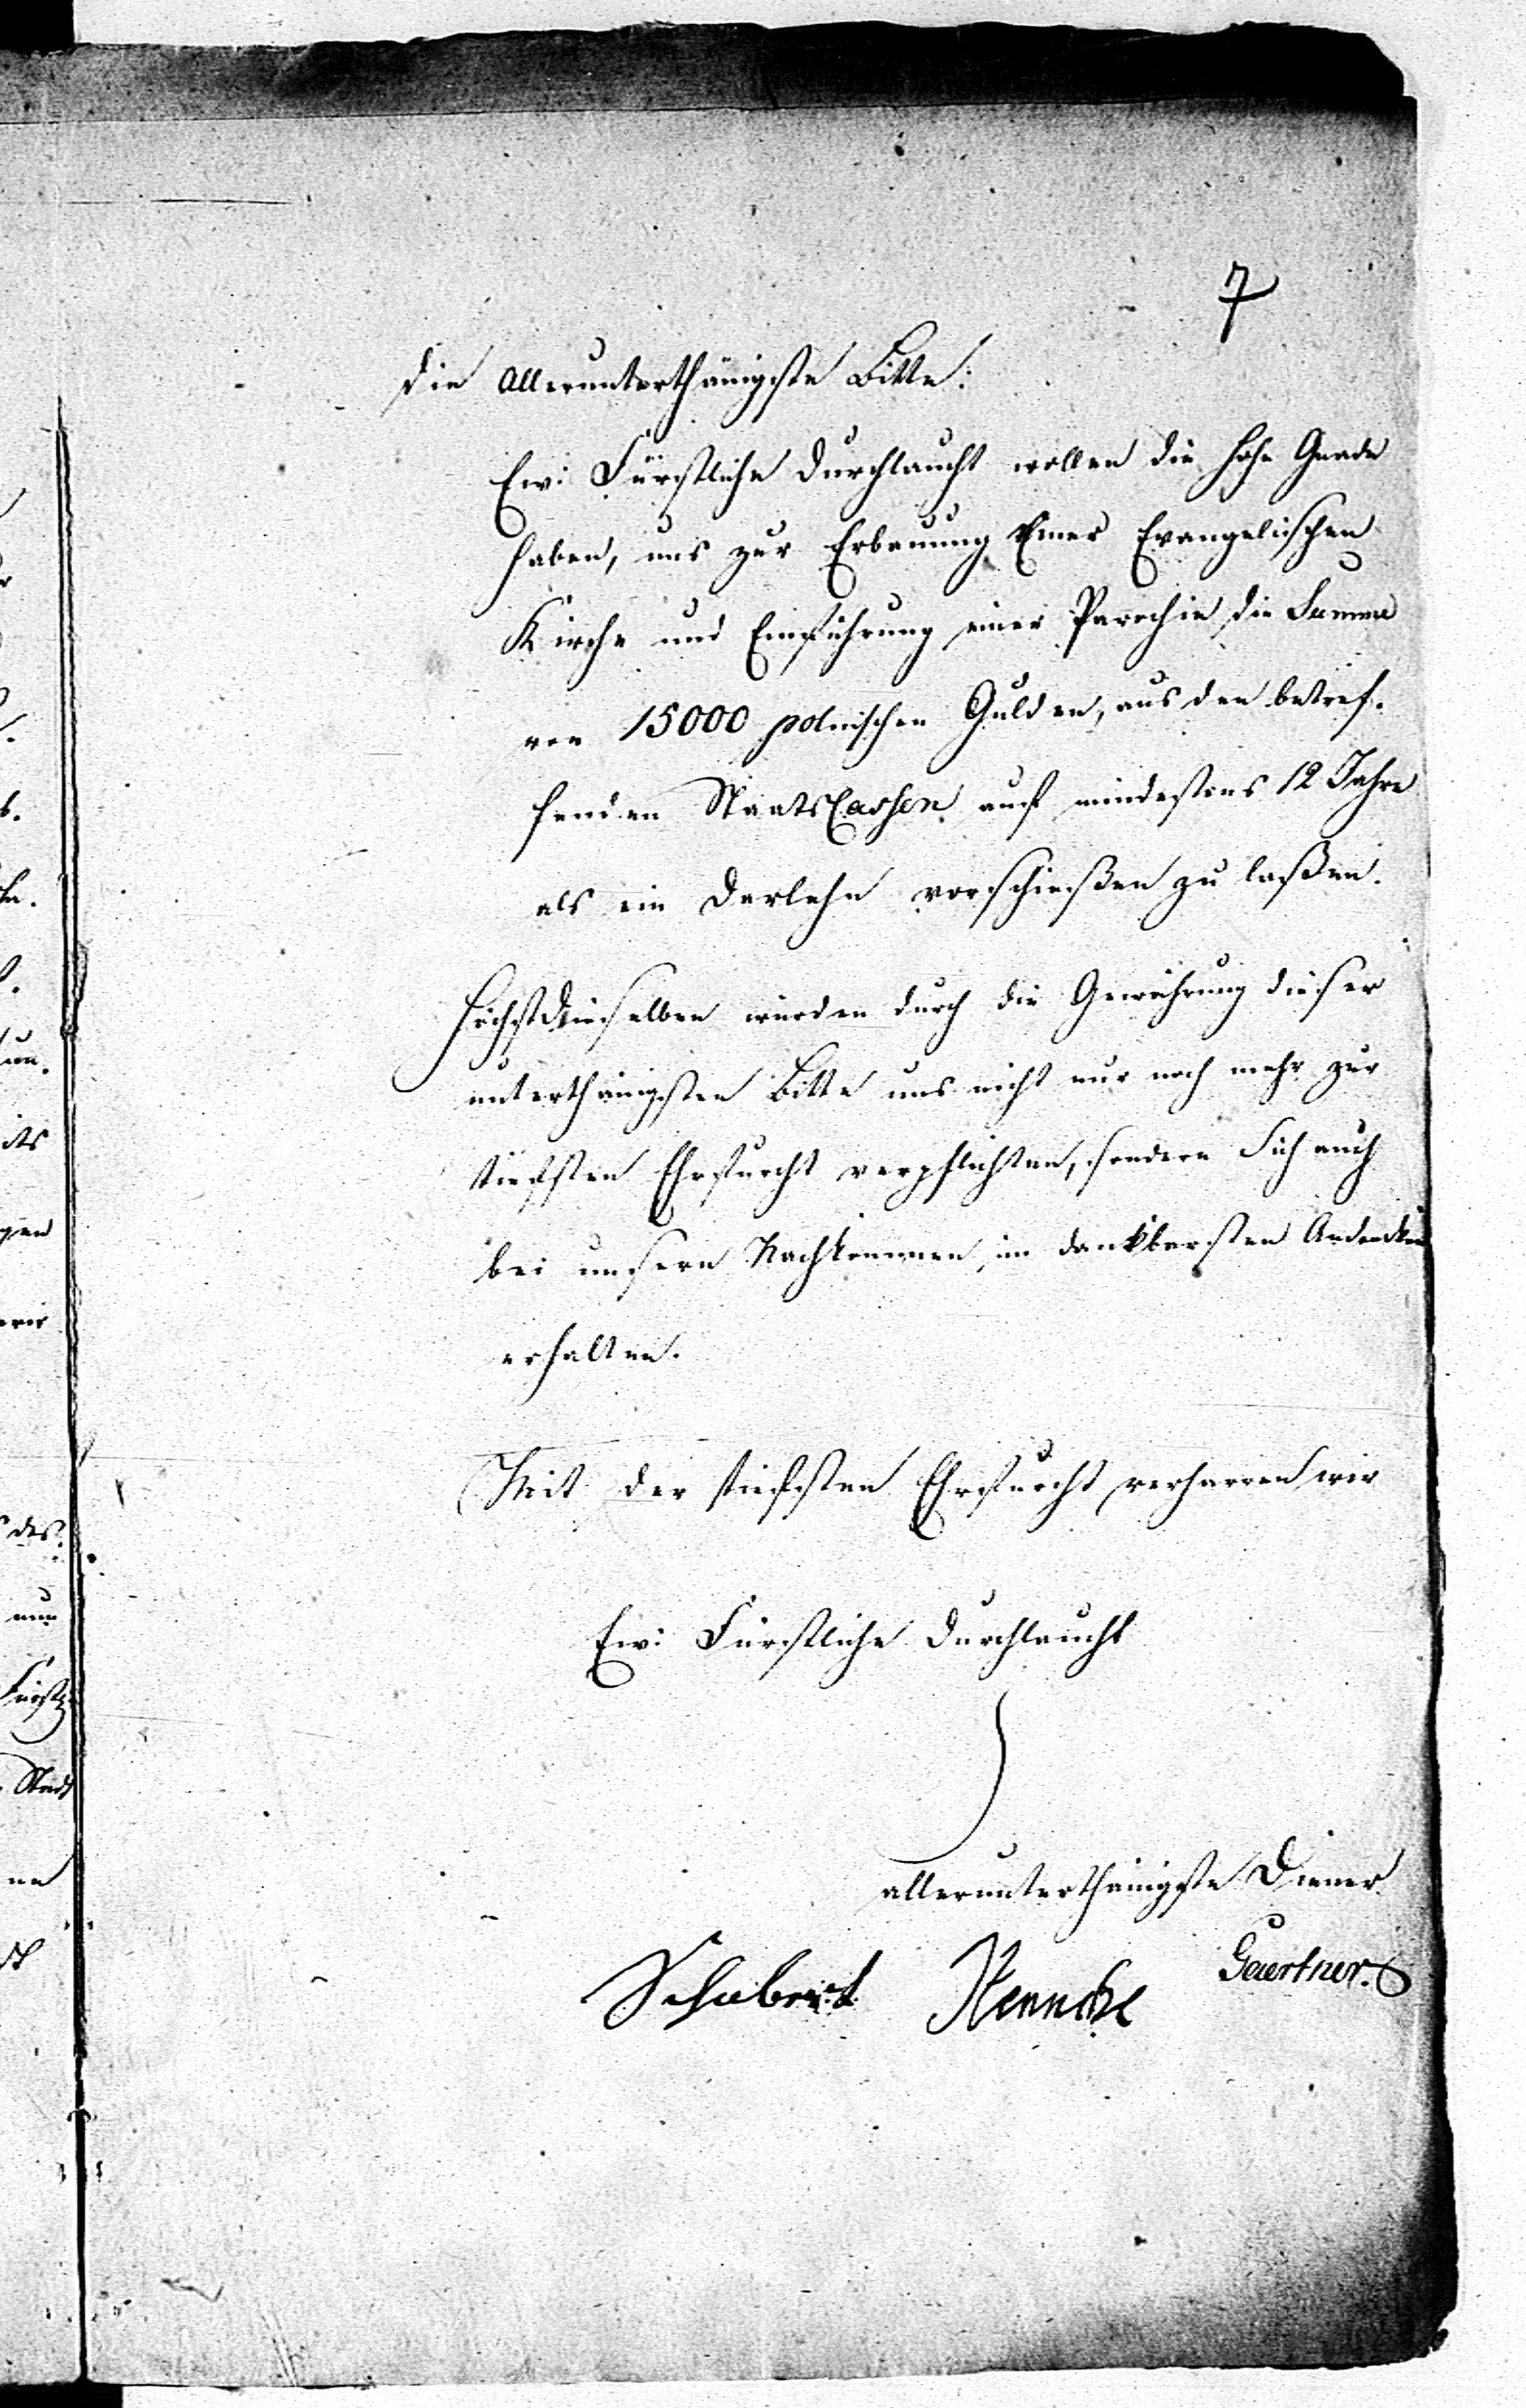 7
die allerunterthänigste Bitte:
Ew: Fürstliche Durchlaucht wollen die hohe Gnade
haben, uns zur Erbauung Einer Evangelischen
Kirche und Einführung einer Parochie die Summe
von 15000 polnischen Gulden, aus den betref-
fenden StaatsCassen auf mindestens 12 Jahre
als ein Darlehn vorschießen zu laßen.
Höchstdieselben würden durch die Gewährung dieser
unterthänigsten Bitte uns nicht nur noch mehr zur
tiefsten Ehrfurcht verpflichten, sondern Sich auch
bei unsern Nachkommen im dankbarsten Andenken
erhalten.
Mit der tiefsten Ehrfurcht verharren wir
Ew: Fürstliche Durchlaucht
allerunterthänigste Diener
Gaertner.
Schubert